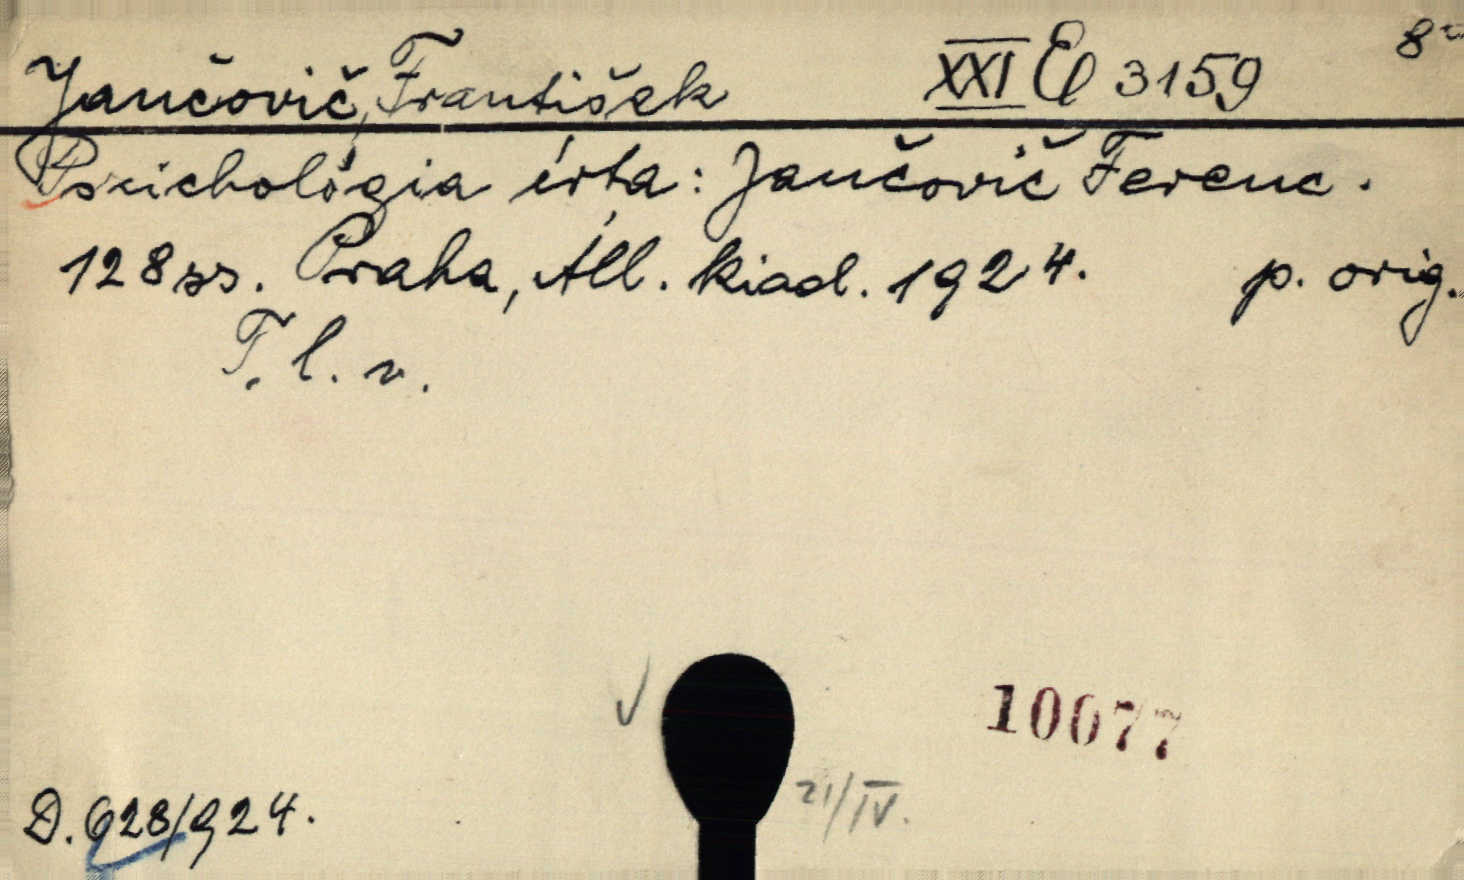 Jančovič, František XXI El 3159 8°
Pszichológia írta: Jančovič Ferenc.
128 ss. Praha, Áll. kiad. 1924. p. orig.
T. l. v.
10077
21/IV.
D. 928/924.